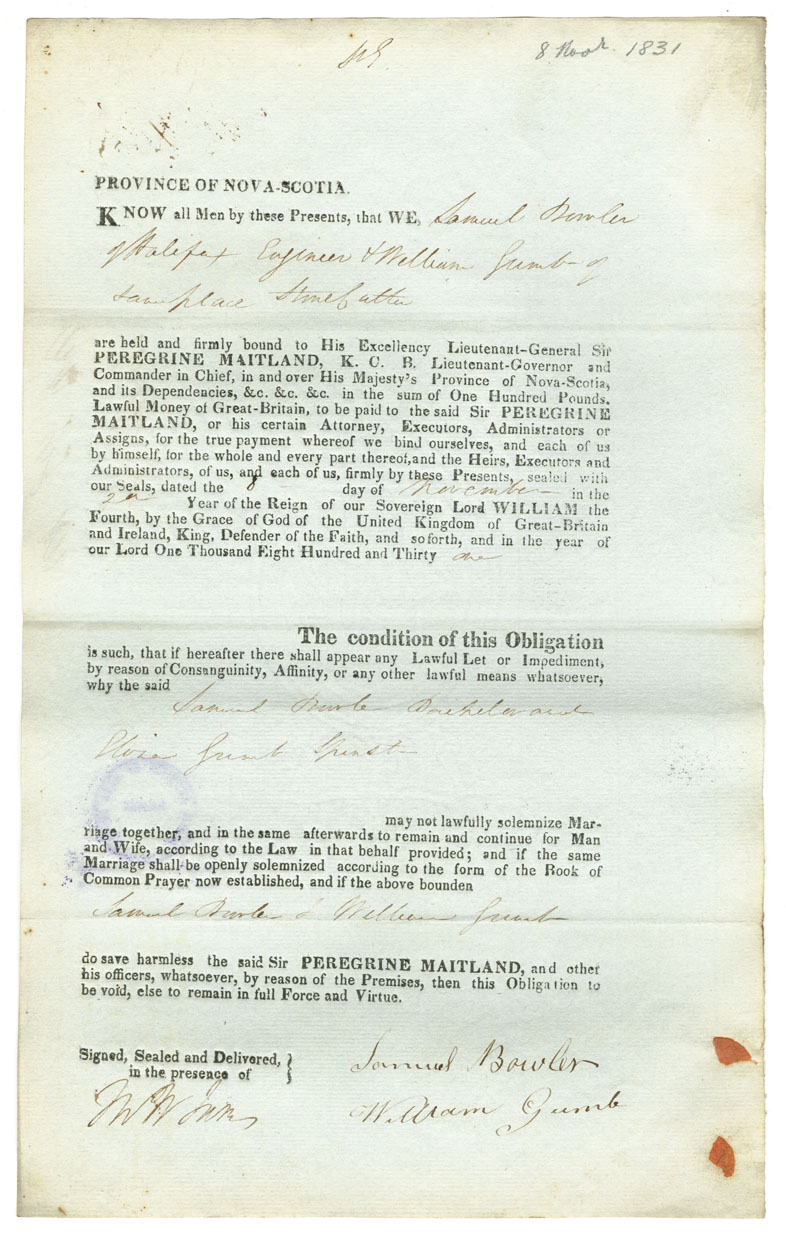 8 Novr. 1831
PROVINCE OF NOVA-SCOTIA.
KNOW all Men by these Presents, that WE, Samuel Bowler
of Halifax Engineer & William Gumb of
same place Stone Cutter
are held and firmly bound to His Excellency Lieutenant-General Sir
PEREGRINE MAITLAND, K. C. B. Lieutenant-Governor and
Commander in Chief, in and over His Majesty's Province of Nova-Scotia,
and its Dependencies, &c. &c. &c. in the sum of One Hundred Pounds,
Lawful Money of Great-Britain, to be paid to the said Sir PEREGRINE
MAITLAND, or his certain Attorney, Executors, Administrators or
Assigns, for the true payment whereof we bind ourselves, and each of us
by himself, for the whole and every part thereof, and the Heirs, Executors and
Administrators, of us, and each of us, firmly by these Presents, sealed with
our Seals, dated the 8 day of November in the
2nd Year of the Reign of our Sovereign Lord WILLIAM the
Fourth, by the Grace of God of the United Kingdom of Great-Britain
and Ireland, King, Defender of the Faith, and so forth, and in the year of
our Lord One Thousand Eight Hundred and Thirty one
The condition of this Obligation
is such, that if hereafter there shall appear any Lawful Let or Impediment,
by reason of Consanguinity, Affinity, or any other lawful means whatsoever,
why the said
Samuel Bowler Bachelor and
Gumb Spinster
may not lawfully solemnize Mar-
riage together, and in the same afterwards to remain and continue for Man
and Wife, according to the Law in that behalf provided; and if the same
Marriage shall be openly solemnized according to the form of the Book of
Common Prayer now established, and if the above bounden
Samuel Bowler & William Gumb
do save harmless the said Sir PEREGRINE MAITLAND, and other
his officers, whatsoever, by reason of the Premises, then this Obligation to
be void, else to remain in full Force and Virtue.
Signed, Sealed and Delivered,
in the presence of
Samuel Bowler
William Gumb